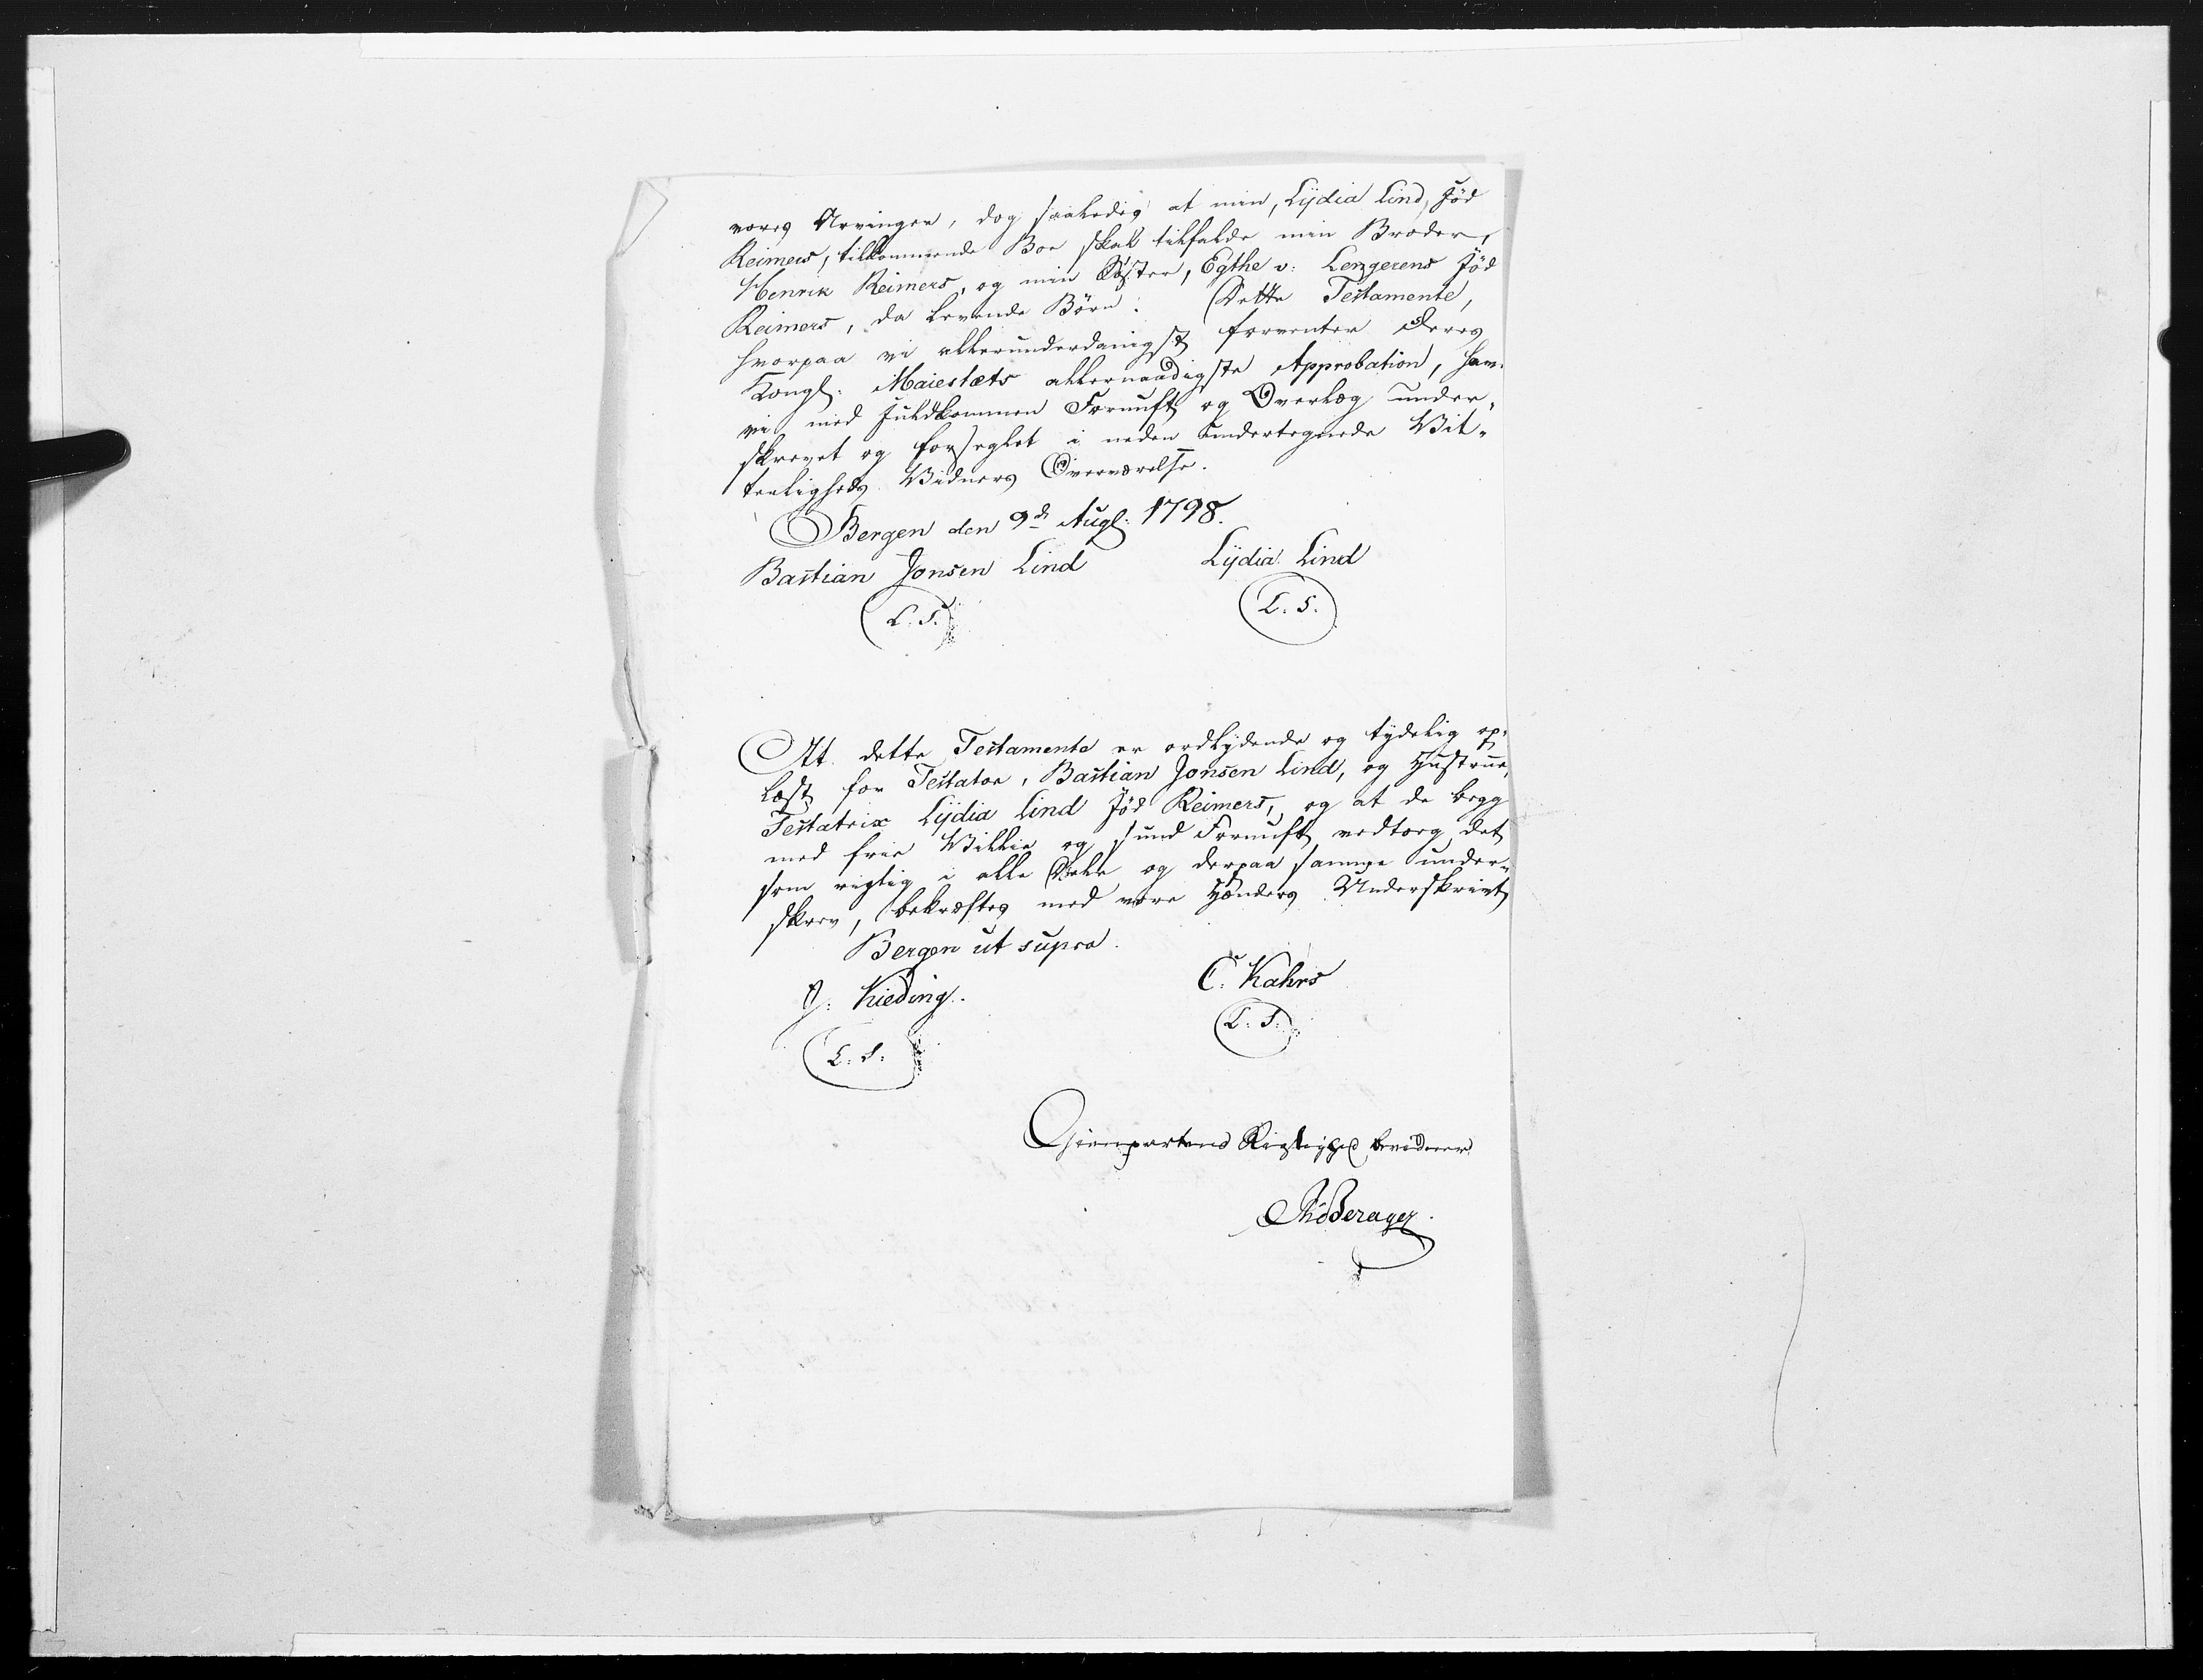 vores Arvinger, dog saaledes at min, Lÿdia Lind, fød
Reimers, tilkommende Boe skal tilfalde min Broder,
Henrik Reimers, og min Søster, Egthe v: Lengerens fød
Reimers, da levende Børn. Dette Testamente,
hvorpaa vi allerunderdanigst forventer Deres
Kongl: Maiestæts allernaadigste Approbation, have
vi med fuldkommen Fornuft og Overlæg under-
skrevet og forseglet i neden undertegnede Vit-
terligheds Vidners Overværelse.
Bergen den 9de Aug: 1798.
Bastian Jonsen Lind Lÿdia Lind
L. S. L. S.
At dette Testamente er ordlydende og tydelig op-
læst for Testator, Bastian Jonsen Lind, og Hustrue,
Testatrix Lÿdia Lind fød Reimers, og at de begge
med frie Villie og sund Fornuft vedtog det
som rigtig i alle Dele og derpaa samme under-
skrev, bekræftes med vore Hænders Underskrivt
Bergen ut supra.
J: Kieding. C. Kahrs
L. S. L. S.
Gienpartens Rigtighed bevidner